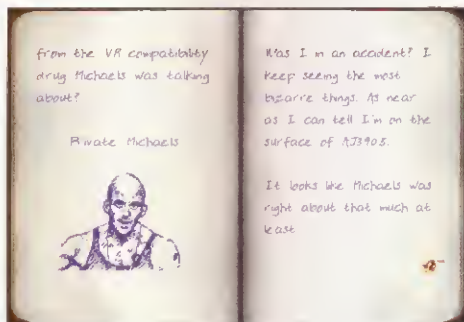 from the VR compatibility
drug Michaels was talking
about?
Private Michaels
Was I in an accident? I
keep seeing the most
bizarre things. As near
as I can tell I'm on the
surface of AJ3905.
It looks like Michaels was
right about that much at
least